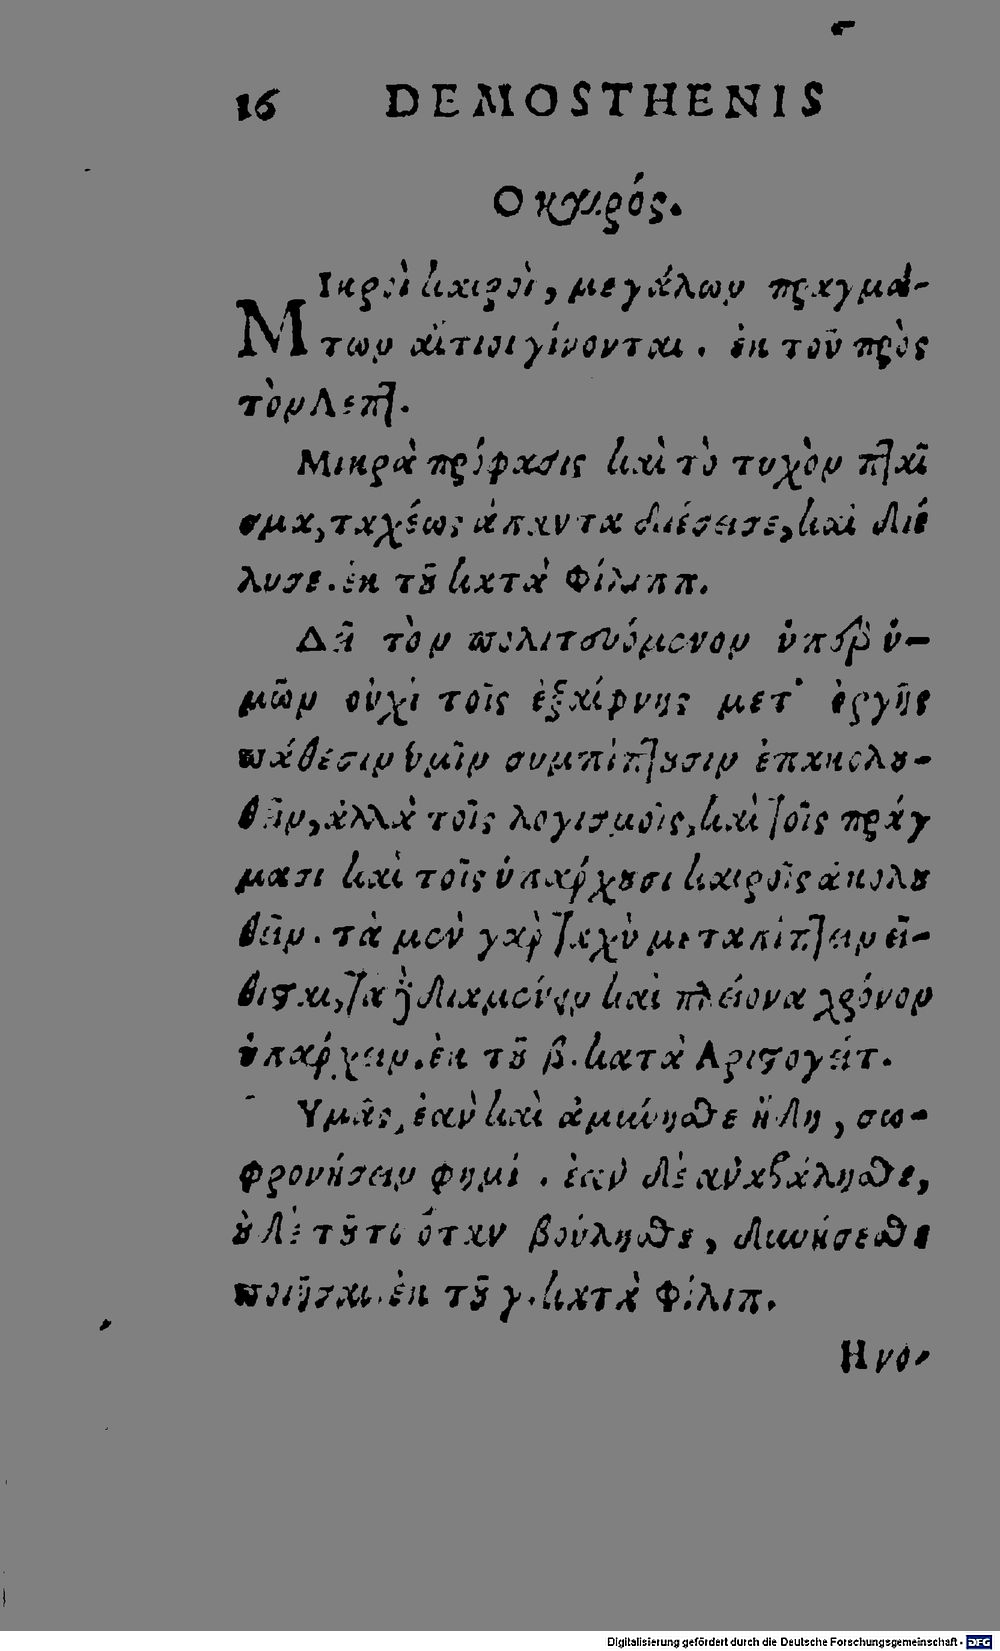 16 DEMOSTHENIS
Ο καιρός.
ΜΙκροὶ καιροὶ, μεγάλων πραγμά-
των αἴτιοι γίνονται. ἐκ τοῦ πρὸς
τὸν Λεπτ.
Μικρὰ πρόφασις καὶ τὸ τυχὸν πταῖ
σμα, ταχέως ἅπαντα διέσεισε, καὶ διέ
λυσε. ἐκ τοῦ κατὰ Φίλιππ.
Δεῖ τὸν πολιτευόμενον ὑπὲρ ὑ-
μῶν οὐχὶ τοῖς ἐξαίφνης μετ' ὀργῆς
πάθεσιν ὑμῖν συμπίπτουσιν ἐπακολου-
θεῖν, ἀλλὰ τοῖς λογισμοῖς, καὶ τοῖς πράγ
μασι καὶ τοῖς ὑπάρχουσι καιροῖς ἀκολου
θεῖν. τὰ μὲν γὰρ ταχὺ μεταπίπτειν εἴ-
θισται, τὰ δὲ διαμένειν καὶ πλείονα χρόνον
ὑπάρχειν. ἐκ τοῦ β. κατὰ Αριστογείτ.
Υμᾶς, ἐὰν καὶ ἀμύνησθε ἤδη, σω-
φρονήσειν φημί. ἐὰν δὲ ἀναβάλησθε,
οὐδὲ τοῦτο ὅταν βούλησθε, δυνήσεσθε
ποιῆσαι. ἐκ τοῦ γ. κατὰ Φίλιπ.
Ηνο-
Digitalisierung gefördert durch die Deutsche Forschungsgemeinschaft - DFG